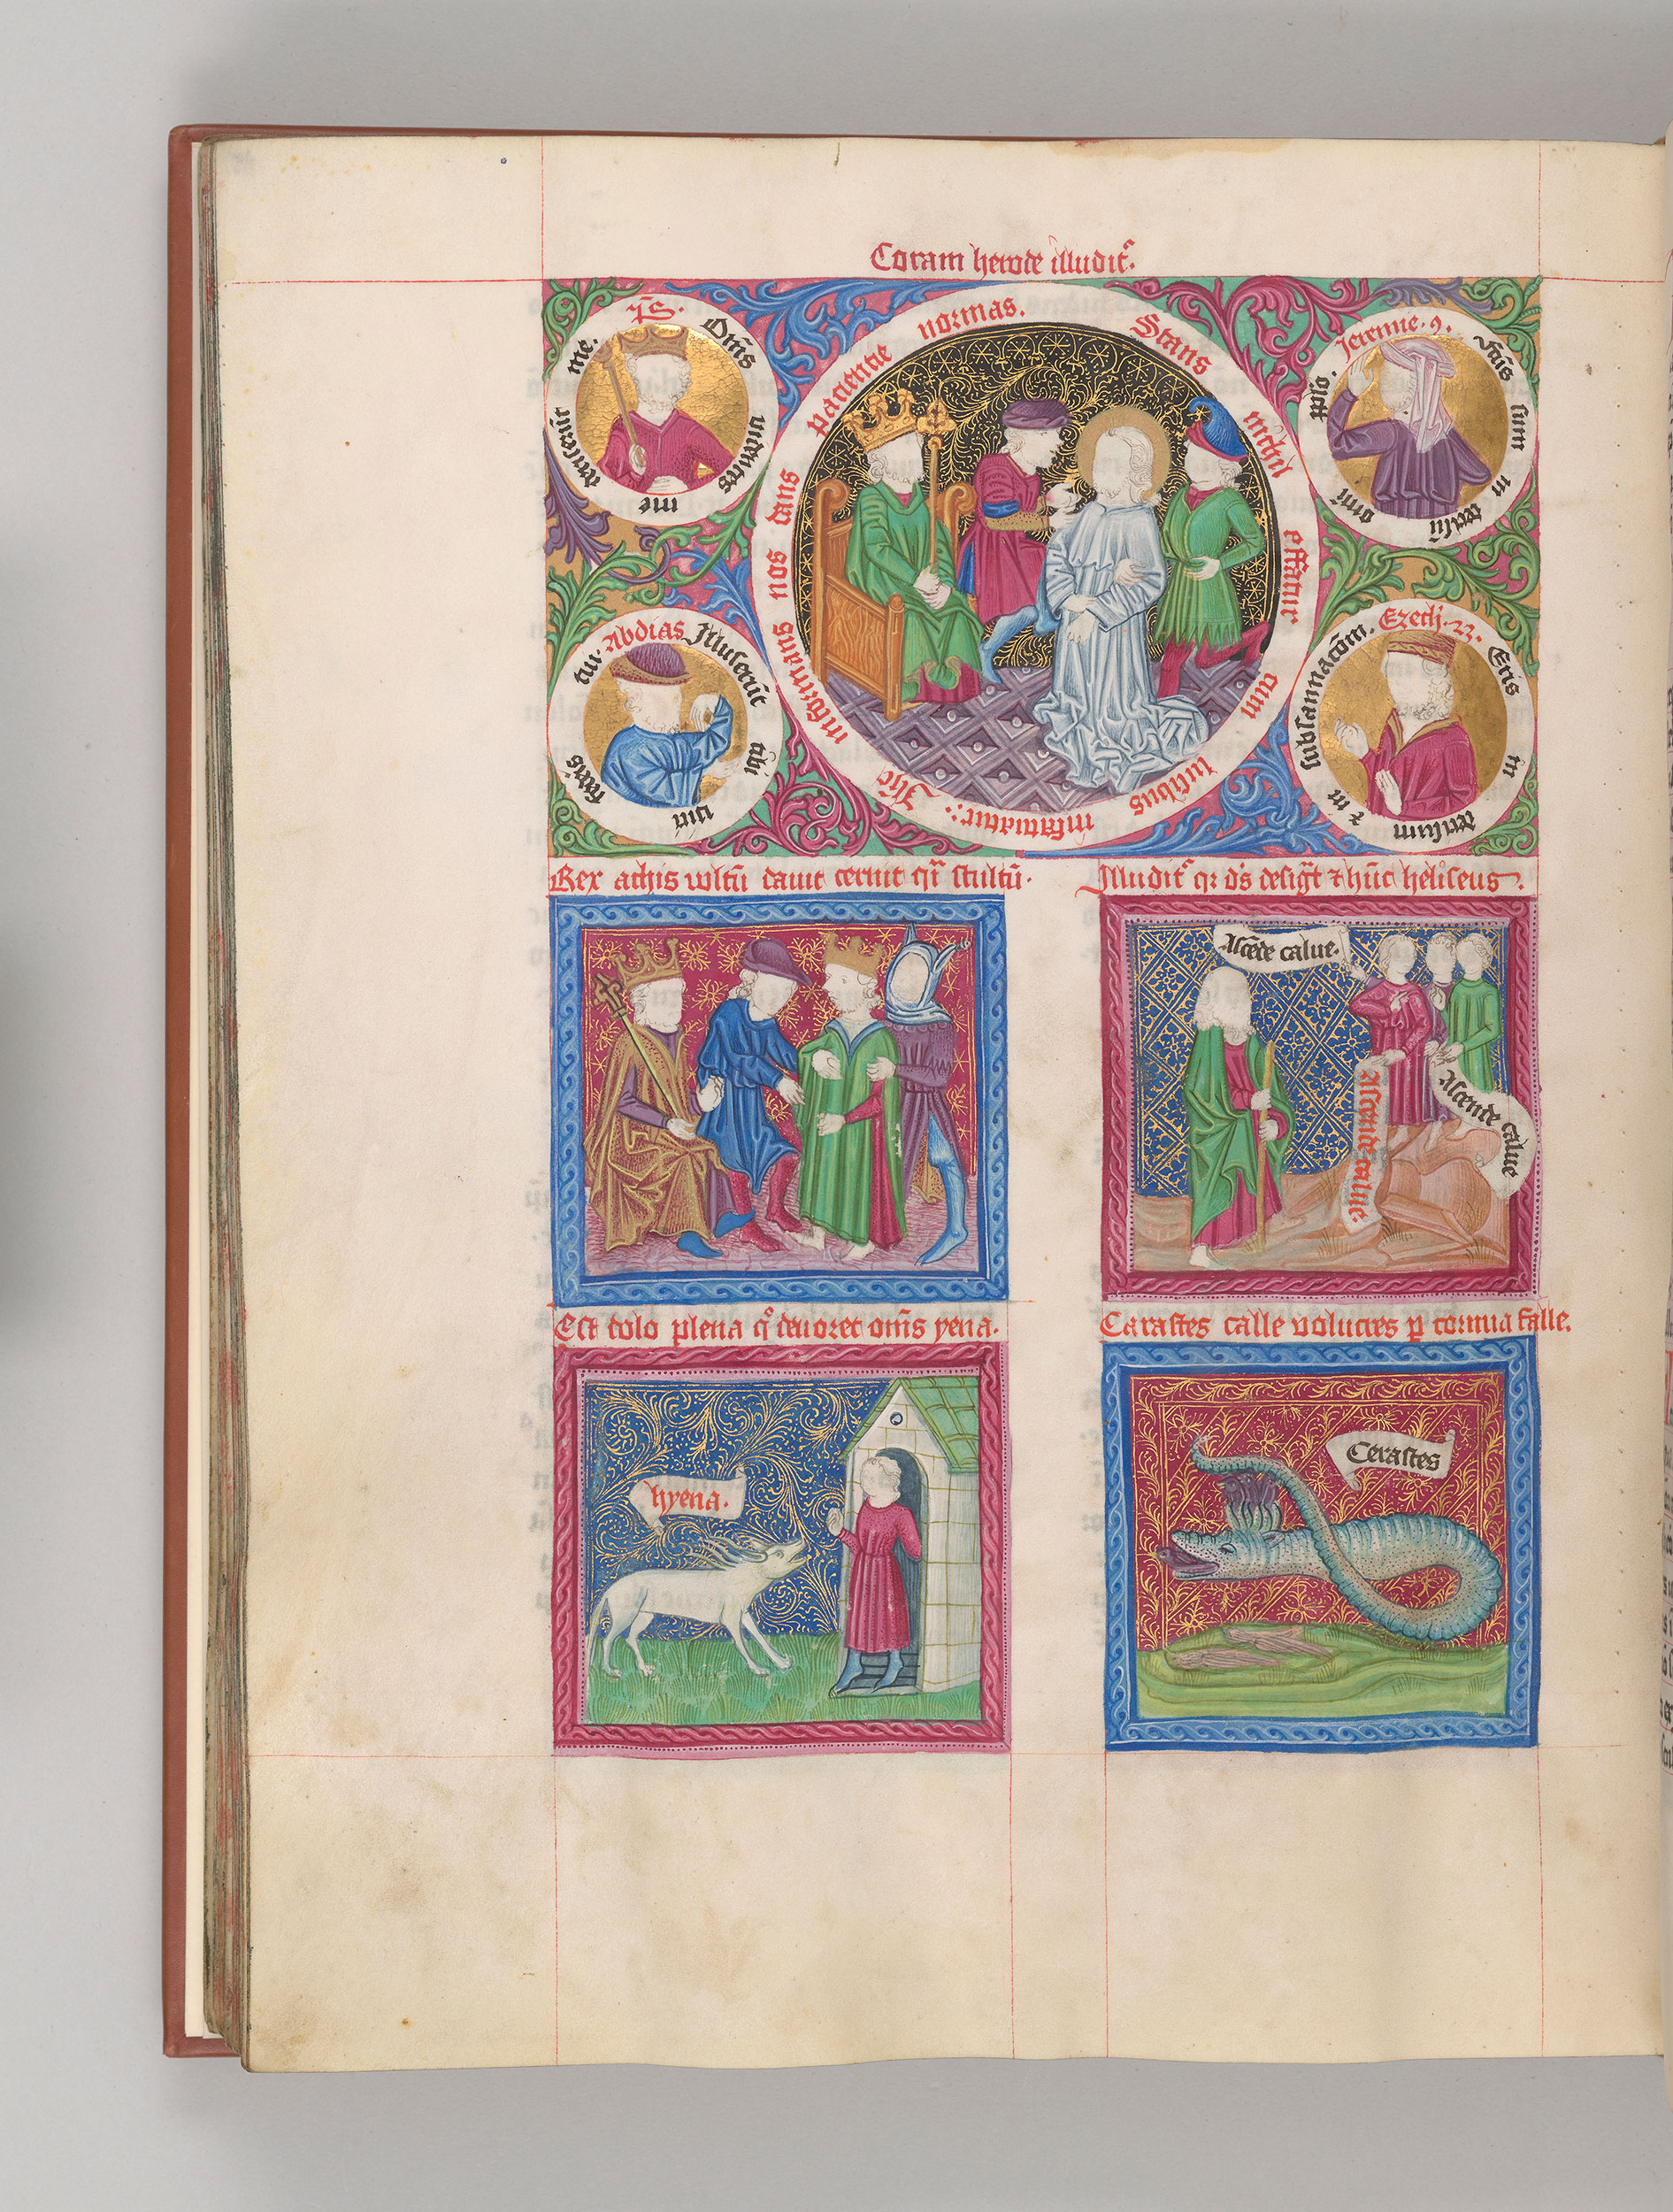 Coram herode illudit᷑.
p̄s. Om̄s videntes me deriserūt me.
Stans nichil effatur cum lusibus infatuatur: Hic informans nos dans patientie normas.
Jeremie. 9. Fc̄us sum in derisū omni pplo.
Abdias Illuserūt tibi viri pacis tui.
Ezech. 23. Eris in derisum ⁊ in subsannacōm.
Rex achis vultū david cernit qr̄ stultū.
Illudit᷑ qr d's desigt̄ ⁊ hūc heliseus.
Ascēde calue.
Ascende calue.
Ascende calue
Est dolo plena q° deuoret om̄s yena.
Carastes calle volucres p cornua falle.
hyena.
Cerastes